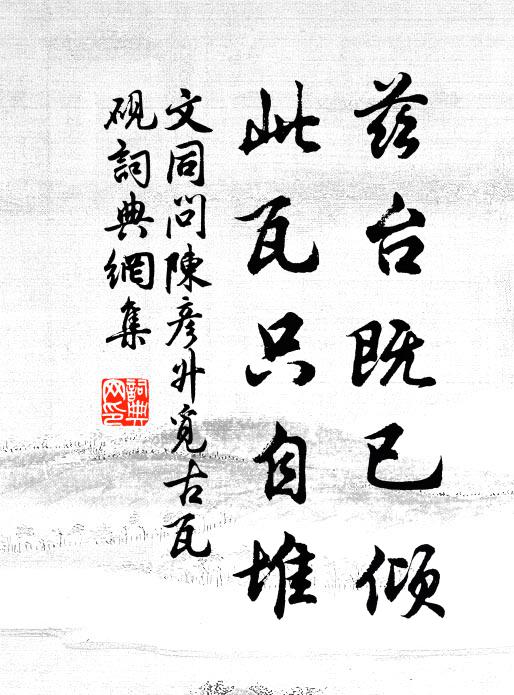 兹台既已倾
此瓦只自堆
文同问陳彦升覓古瓦
硯詞典網集
詞典网印